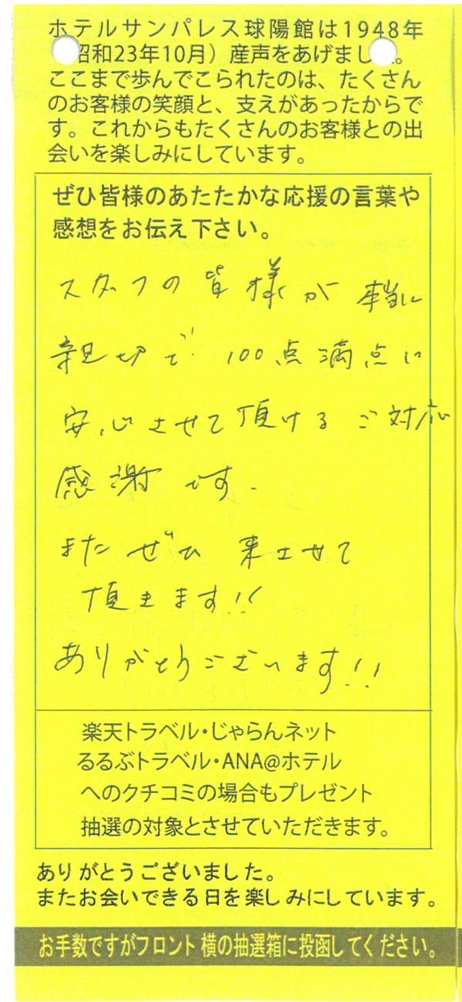 ホテルサンパレス球陽館は1948年
昭和23年10月）産声をあげまし。
ここまで歩んでこられたのは、たくさん
のお客様の笑顔と、支えがあったからで
す。これからもたくさんのお客様との出
会いを楽しみにしています。
ぜひ皆様のあたたかな応援の言葉や
感想をお伝え下さい。
スタッフの皆様が本当に
親切で100点満点に
安心させて頂けるご対応
感謝です.
またぜひ来させて
頂きます!!
ありがとうございます!!
楽天トラベル・じゃらんネット
るるぶトラベル・ANA@ホテル
へのクチコミの場合もプレゼント
抽選の対象とさせていただきます。
ありがとうございました。
またお会いできる日を楽しみにしています。
お手数ですがフロント横の抽選箱に投函してください。